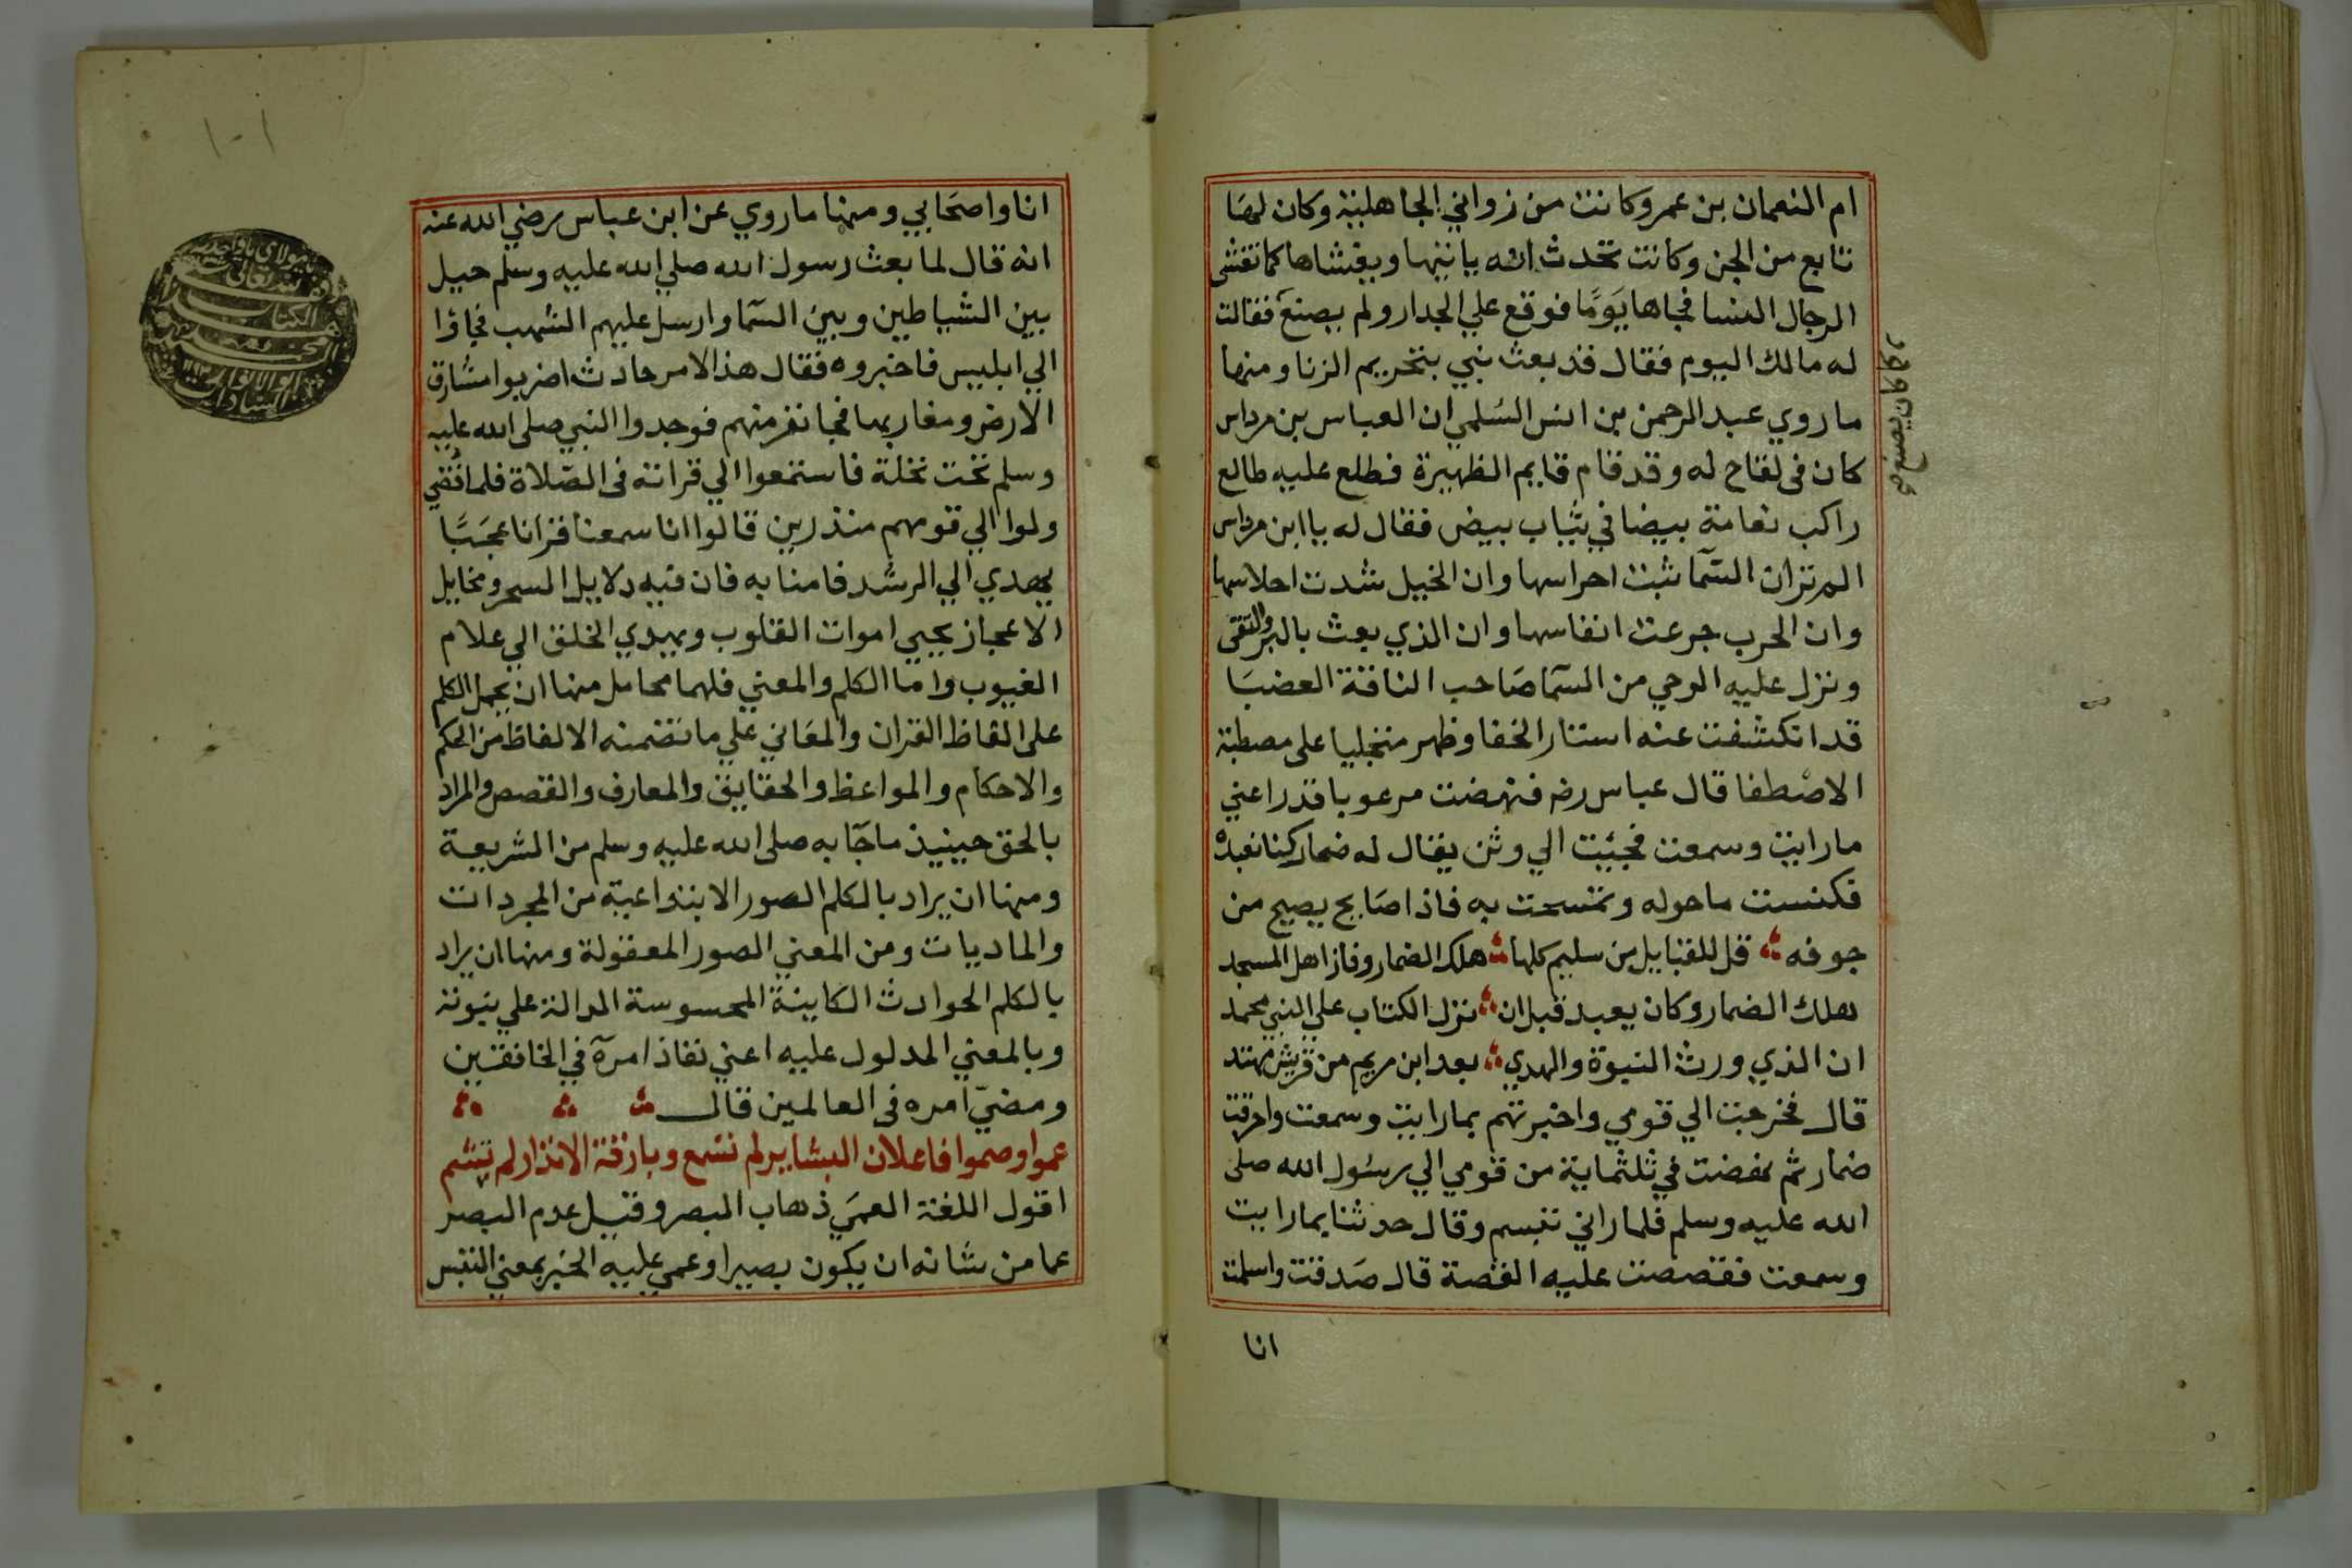 ام النعمان بن عمرو كانت من زواني الجاهلية وكان لها
تابع من الجن وكانت تحدث انه ياتيها ويغشاها كما تغشى
الرجال النسا فجاها يومًا فوقع علي الجدار ولم يصنع فقالت
له مالك اليوم فقال قد بعث نبي بتحريم الزنا ومنها
ما روي عبد الرحمن بن انس السلمي ان العباس بن مرداس
كان في لقاح له وقد قام قايم الظهيرة فطلع عليه طالع
راكب نعامة بيضا في ثياب بيض فقال له يا ابن مرداس
الم تر ان السمآ ثبت احراسها وان الخيل شدت احلاسها
وان الحرب جرعت انفاسها وان الذي بعث بالبر والتقى
ونزل عليه الوحي من السمآ صاحب الناقة العضبا
قد انكشفت عنه استار الخفا وظهر متجليا على مصطبة
الاصطفا قال عباس رضه فنهضت مرعوبا قد راعني
ما رايت وسمعت فجيئت الي وثن يقال له ضمار كنا نعبده
فكنست ما حوله وتمسحت به فاذا صايح يصيح من
جوفه قل للقبايل من سليم كلها هلك الضمار وفاز اهل المسجد
هلك الضمار وكان يعبد قبل ان نزل الكتاب علي النبي محمد
ان الذي ورث النبوة والهدي بعد ابن مريم من قريش مهتد
قال فخرجت الي قومي واخبرتهم بما رايت وسمعت واحرقت
ضمار ثم نهضت في ثلثماية من قومي الي رسول الله صلى
الله عليه وسلم فلما راني تبسم وقال حدثنا بما رايت
وسمعت فقصصت عليه القصة قال صدقت واسلمت
انا
١٠١
انا واصحابي ومنها ما روي عن ابن عباس رضي الله عنه
انه قال لما بعث رسول الله صلي الله عليه وسلم حيل
بين الشياطين وبين السمآ وارسل عليهم الشهب فجاؤا
الي ابليس فاخبروه فقال هذ الامر حادث اضربوا مشارق
الارض ومغاربها فجا نفر منهم فوجدوا النبي صلى الله عليه
وسلم تحت نخلة فاستمعوا الي قراته في الصلاة فلما قضي
ولوا الي قومهم منذرين قالوا انا سمعنا قرانا عجبًا
يهدي الي الرشد فامنا به فان فيه دلايل السحر ومخايل
الاعجاز يحيي اموات القلوب ويهدي الخلق الي علام
الغيوب واما الكلم والمعني فلهما محامل منها ان يحمل الكلم
على القاظ القران والمعاني علي ما تضمنه الالفاظ من الحكم
والاحكام والمواعظ والحقايق والمعارف والقصص والمراد
بالحق حينيذ ما جآ به صلى الله عليه وسلم من الشريعة
ومنها ان يراد بالكلم الصور الابتداعية من المجردات
والماديات ومن المعني الصور المعقولة ومنها ان يراد
بالكلم الحوادث الكاينة المحسوسة الدالة علي نبوته
وبالمعني المدلول عليه اعني نفاذ امره في الخافقين
ومضي امره في العالمين قال
عموا وصموا فاعلان البشاير لم تسمع وبارقة الانذار لم تشم
اقول اللغة العمي ذهاب البصر وقيل عدم البصر
عما من شانه ان يكون بصيرا وعمي عليه الخبر بمعني التبس